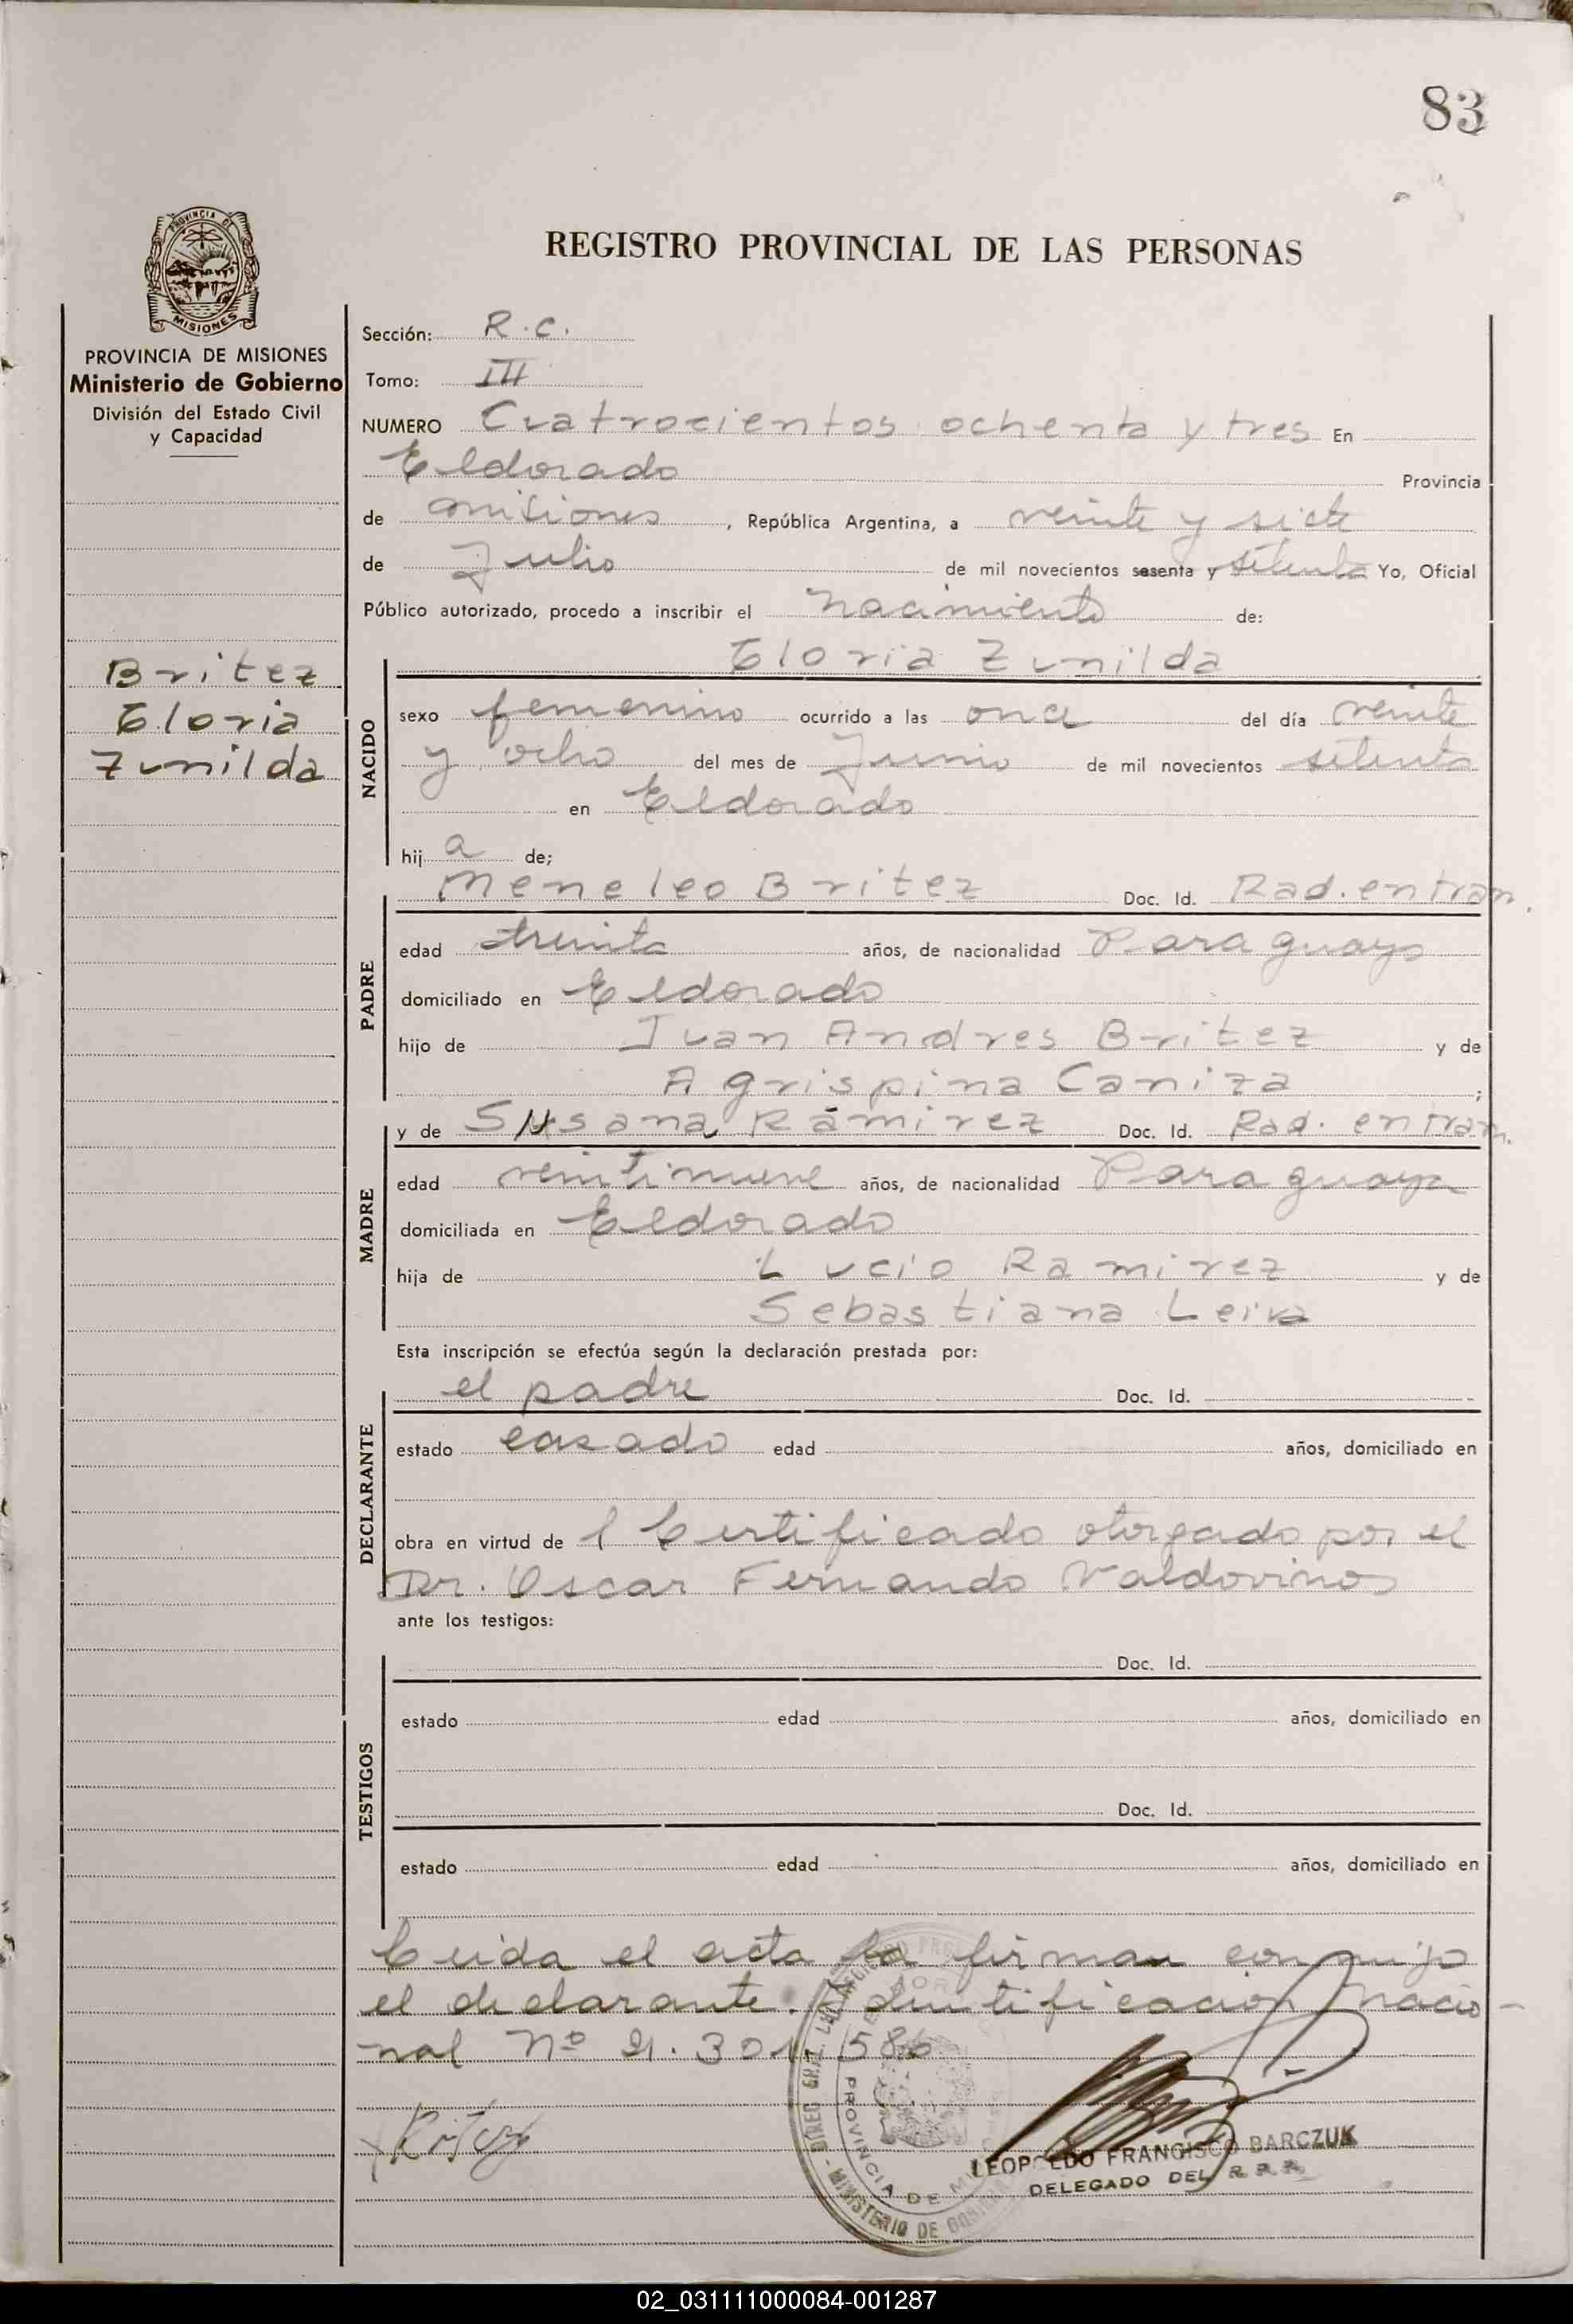 83
PROVINCIA DE
MISIONES
REGISTRO PROVINCIAL DE LAS PERSONAS
PROVINCIA DE MISIONES
Ministerio de Gobierno
División del Estado Civil
y Capacidad
Britez
Gloria
Zunilda
Sección: R.C.
Tomo: III
NUMERO Cuatrocientos ochenta y tres En
Eldorado Provincia
de Misiones, República Argentina, a veinte y siete
de Julio de mil novecientos sesenta y setenta Yo, Oficial
Público autorizado, procedo a inscribir el Nacimiento de:
Gloria Zunilda
NACIDO
sexo femenino ocurrido a las once del día veinte
y ocho del mes de Junio de mil novecientos setenta
en Eldorado
hij a de;
Meneleo Britez Doc. Id. Rad. en tram.
PADRE
edad treinta años, de nacionalidad Paraguayo
domiciliado en Eldorado
hijo de Juan Andres Britez y de
Agrispina Caniza ;
y de Susana Ramirez Doc. Id. Rad. en tram.
MADRE
edad veintinueve años, de nacionalidad Paraguaya
domiciliada en Eldorado
hija de Lucio Ramirez y de
Sebastiana Leiva
Esta inscripción se efectúa según la declaración prestada por:
el padre Doc. Id.
DECLARANTE
estado casado edad años, domiciliado en
obra en virtud de l Certificado otorgado por el
Dr. Oscar Fernando Valdovinos
ante los testigos:
Doc. Id.
TESTIGOS
estado edad años, domiciliado en
Doc. Id.
estado edad años, domiciliado en
Leida el acta la firman conmigo
el declarante. Identificación Nacio-
nal Nº 21.301.586
LEOPOLDO FRANCISCO BARCZUK
DELEGADO DEL R.P.P.
PROVINCIA DE
MINISTERIO DE
02_031111000084-001287